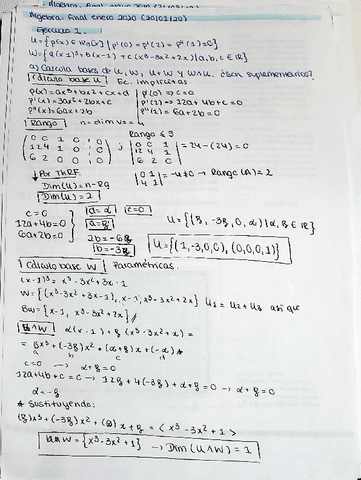 Álgebra: final enero 2020 (20/01/20)
Ejercicio 1.
U = {p(x) ∈ R₃[x] | p'(0) = p'(2) = p''(1) = 0}
W = {a(x-1)³ + b(x-1) + c(x³-3x²+2x) | a, b, c ∈ R}
a) Calcula bases de U, W, U+W y W∩U. ¿Son suplementarios?
Cálculo base U Ec. implícitas
p(x) = ax³+bx²+cx+d | p'(0) => c=0
p'(x) = 3ax²+2bx+c | p'(2) => 12a+4b+c=0
p''(x) = 6ax+2b | p''(1) => 6a+2b=0
Rango n = dim V₃ = 4
Rango ≤ 3
0 0 1 0 | 0
12 4 1 0 | 0
6 2 0 0 | 0
; |0 0 1
12 4 1
6 2 0| = 24-(24) = 0
↓ Por ThRF
Dim(U) = n-Rg
Dim(U) = 2
|0 1
4 1| = -4 ≠ 0 → Rango(A) = 2
c=0
12a+4b=0
6a+2b=0
a=α c=0
a=β
2b=-6β
b=-3β
U = {(β, -3β, 0, α) | α, β ∈ R}
U = {(1,-3,0,0), (0,0,0,1)}
Cálculo base W Paramétricas.
(x-1)³ = x³-3x²+3x-1
W = {(x³-3x²+3x-1), x-1, x³-3x²+2x} u₁ = u₂+u₃ así que
Bw = {x-1, x³-3x²+2x}
U∩W α(x-1) + β(x³-3x²+x) =
= βx³ + (-3β)x² + (α+β)x + (-α) *
a b c d
c=0 → α+β=0
12a+4b+c=0 → 12β+4(-3β)+α+β=0 → α+β=0
α=-β
* Sustituyendo:
(β)x³+(-3β)x²+(0)x+β = <x³-3x²+1>
U∩W = {x³-3x²+1} → Dim(U∩W) = 1